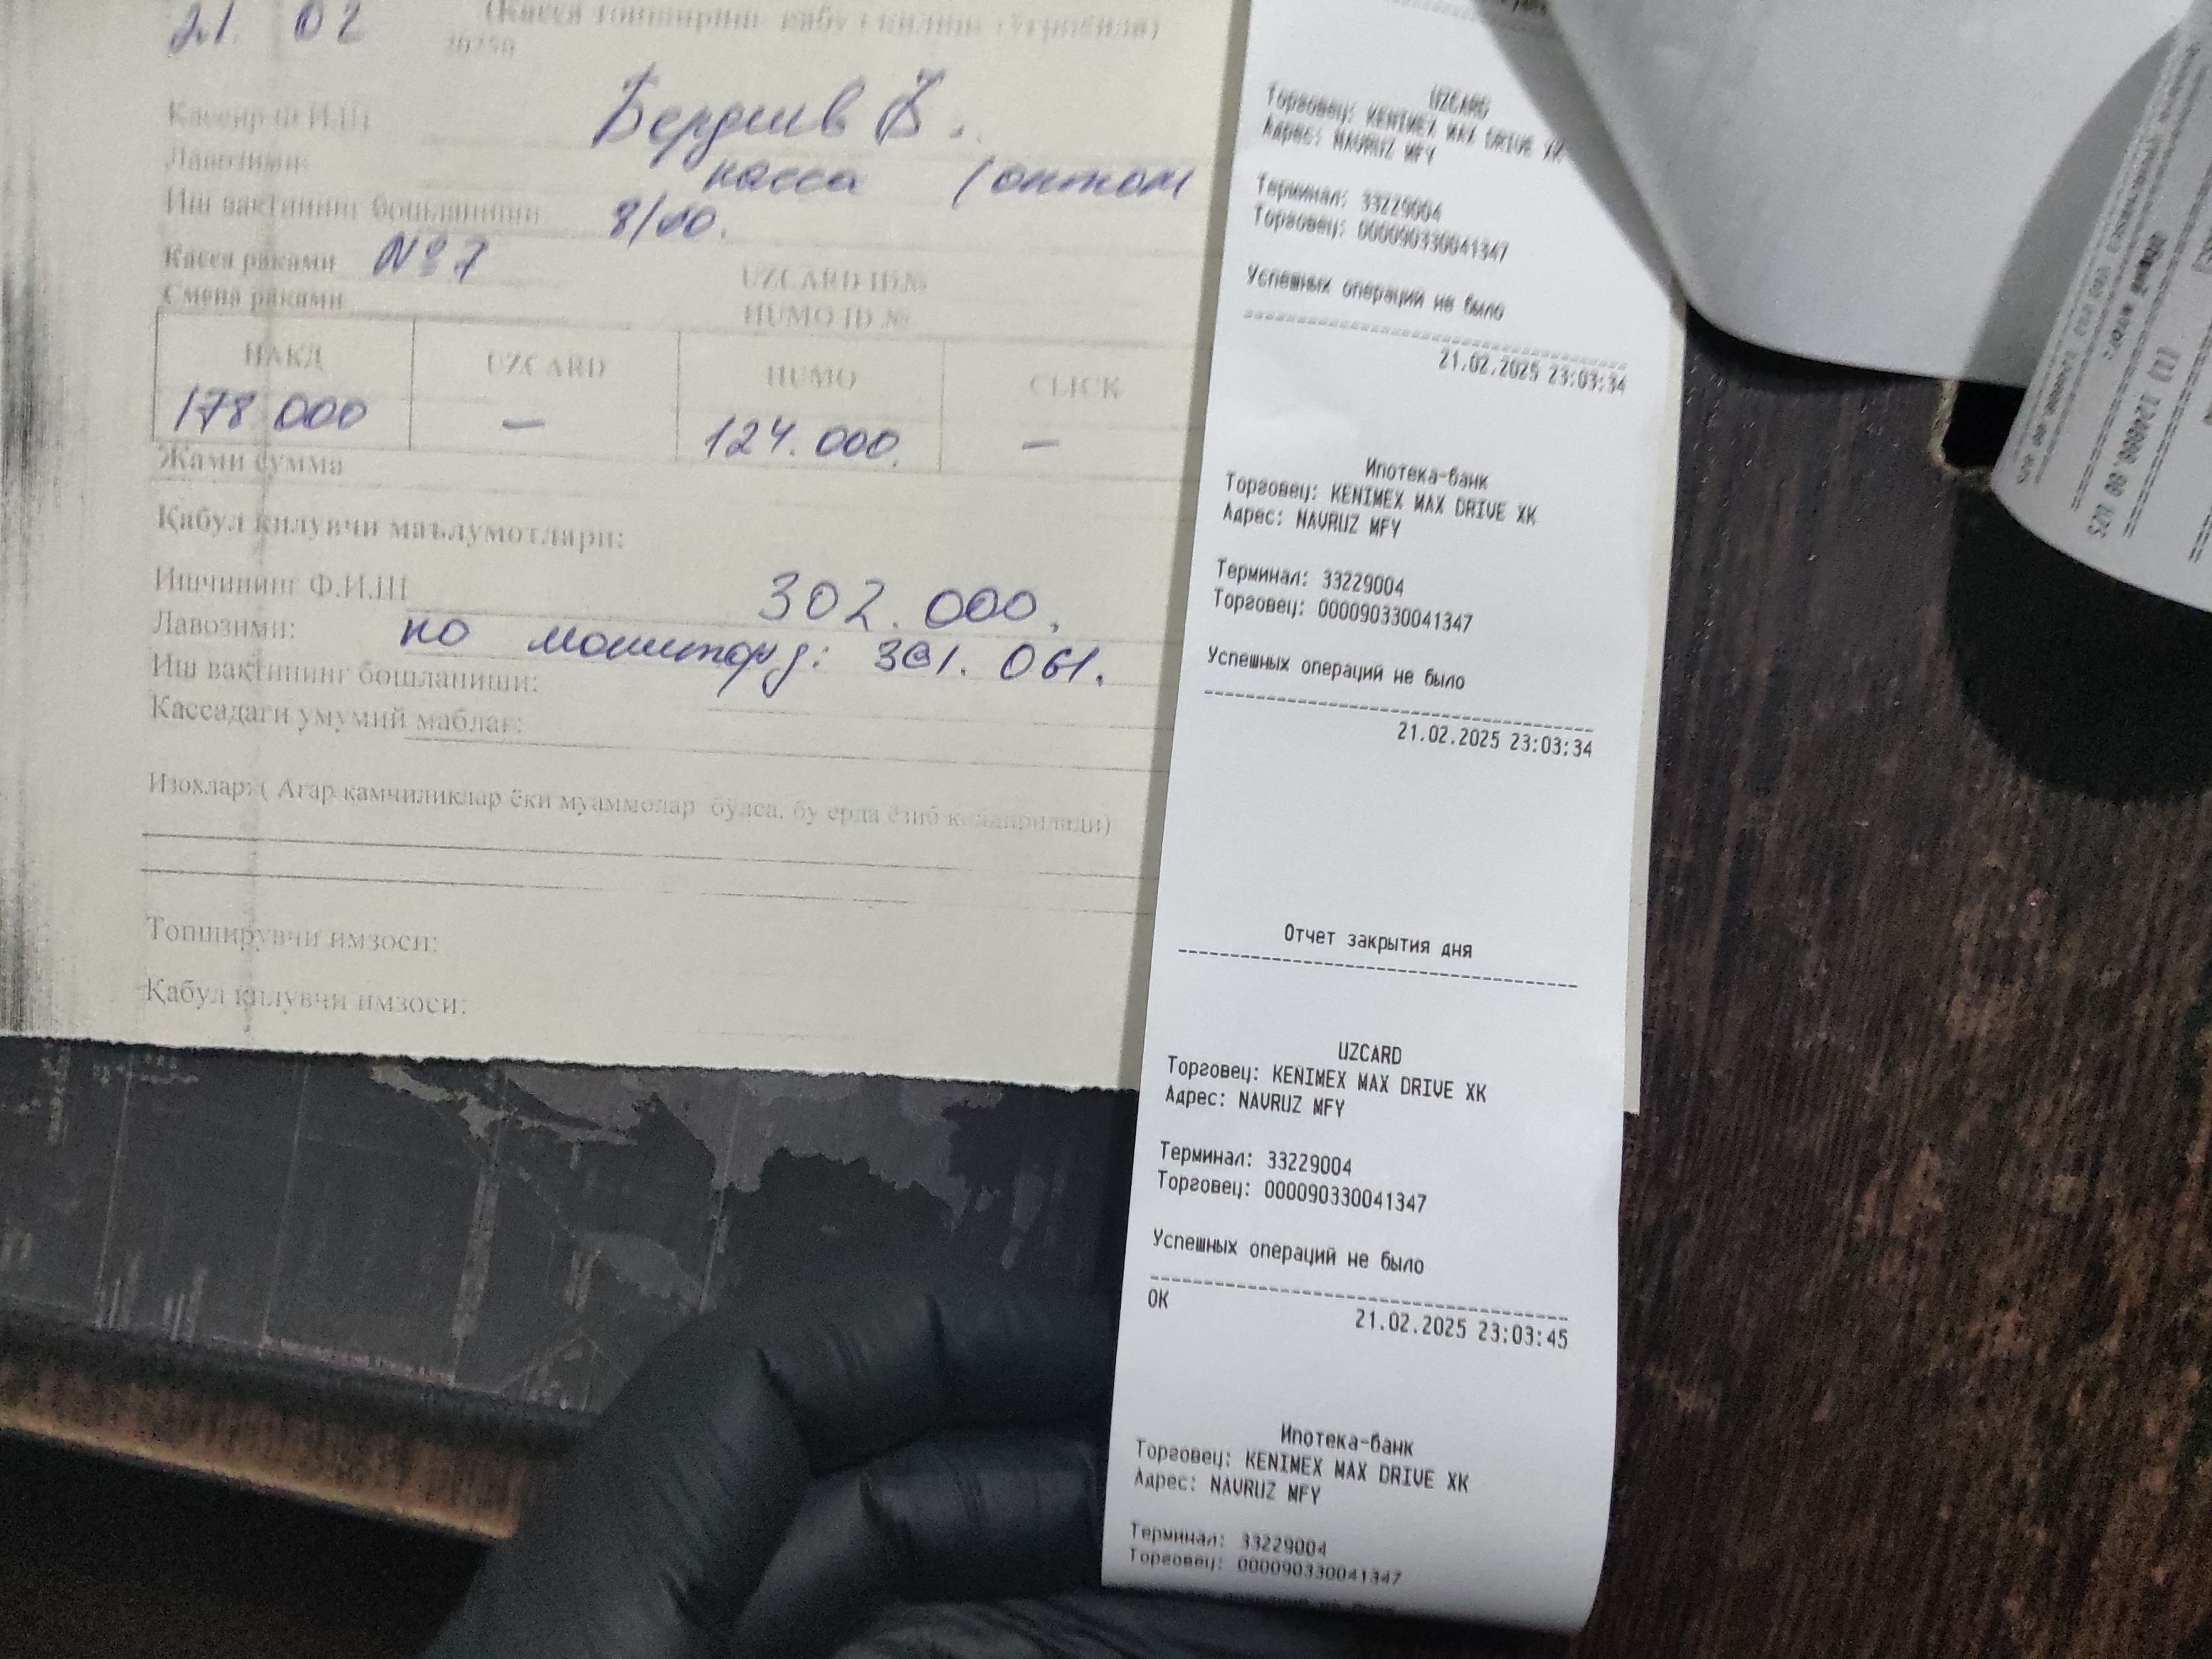 21. 02
(Касса топшириш- қабул қилиш тўғрисида)
Кассир Ф.И.Ш
Бердиев
Лавозими:
касса (оптом
Иш вақтининг бошланиши:
8/00.
Касса рақами №7
UZCARD ID.№
Смена рақами
HUMO ID №
НАКД UZCARD HUMO CLICK
178 000 — 124.000. —
Жами сумма
Қабул қилувчи маълумотлари:
Ишчининг Ф.И.Ш
302.000.
Лавозими: по монитору: 301.061.
Иш вақтининг бошланиши:
Кассадаги умумий маблағ:
Изохлар: ( Агар камчиликлар ёки муаммолар бўлса, бу ерда ёзиб қолдирилади)
Топширувчи имзоси:
Қабул қилувчи имзоси:
UZCARD
Торговец: KENIMEX MAX DRIVE XK
Адрес: NAVRUZ MFY
Терминал: 33229004
Торговец: 000090330041347
Успешных операций не было
21.02.2025 23:03:34
Ипотека-банк
Торговец: KENIMEX MAX DRIVE XK
Адрес: NAVRUZ MFY
Терминал: 33229004
Торговец: 000090330041347
Успешных операций не было
21.02.2025 23:03:34
Отчет закрытия дня
UZCARD
Торговец: KENIMEX MAX DRIVE XK
Адрес: NAVRUZ MFY
Терминал: 33229004
Торговец: 000090330041347
Успешных операций не было
OK
21.02.2025 23:03:45
Ипотека-банк
Торговец: KENIMEX MAX DRIVE XK
Адрес: NAVRUZ MFY
Терминал: 33229004
Торговец: 000090330041347
Общий итог:
(1) 124000.00 UZS